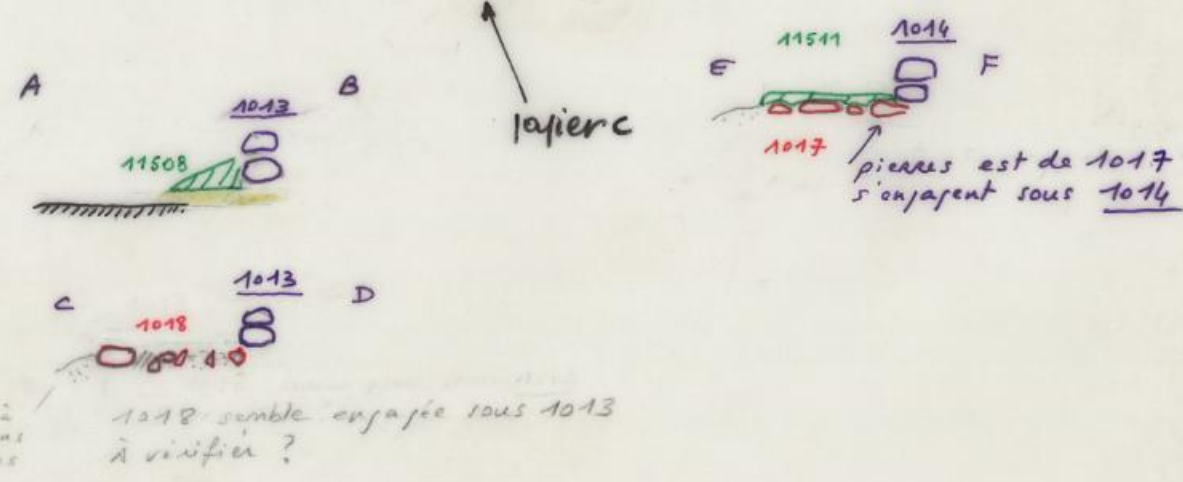 A
B
1013
11508
papier c
11511
1014
E
F
1017
pierres est de 1017
s'engagent sous 1014
C
D
1013
1018
1018 semble engagée sous 1013
à vérifier ?